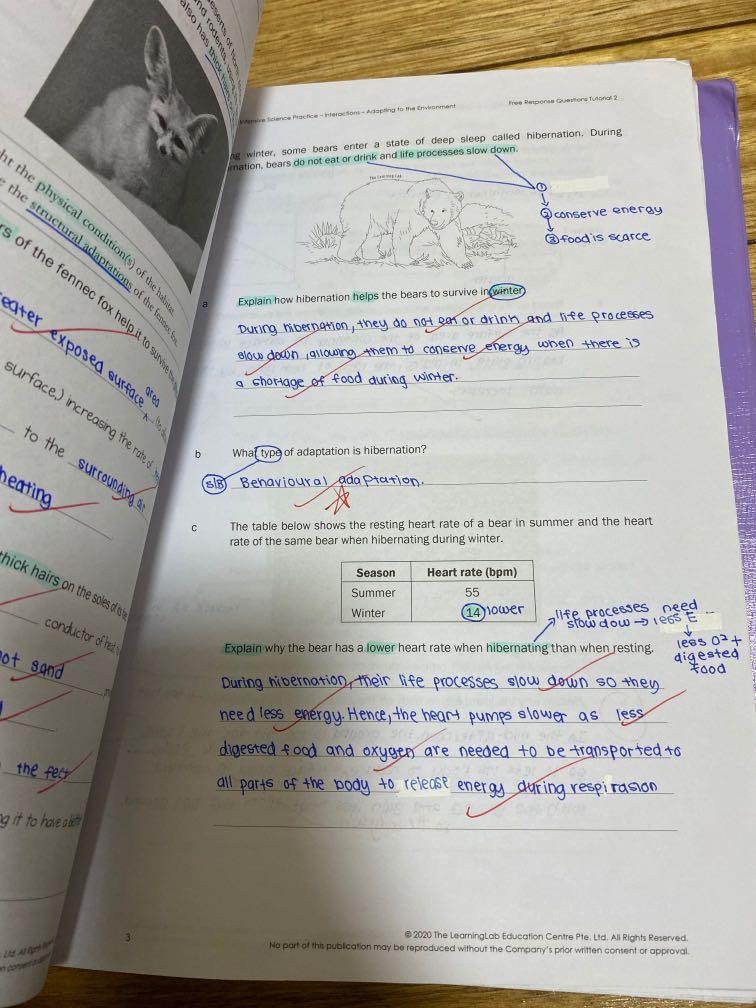 ssents of
and rodents
also has thick
ht the physical condition(s) of the habitat.
e the structural adaptations of the fennec fox
rs of the fennec fox help it to survive
eater exposed surface area
surface,) increasing the rate of
to the surrounding air
heating
thick hairs on the soles of its
conductor of heat
ot sand
the feet
g it to have a
Ltd. All Rights
Intensive Science Practice – Interactions – Adapting to the Environment
Free Response Questions Tutorial 2
ng winter, some bears enter a state of deep sleep called hibernation. During
rnation, bears do not eat or drink and life processes slow down.
The Learning Lab
①
② conserve energy
③ food is scarce
a Explain how hibernation helps the bears to survive in winter.
During hibernation, they do not eat or drink and life processes
slow down, allowing them to conserve energy when there is
a shortage of food during winter.
b What type of adaptation is hibernation?
S/B Behavioural adaptation.
c The table below shows the resting heart rate of a bear in summer and the heart
rate of the same bear when hibernating during winter.
Season Heart rate (bpm)
Summer 55
Winter 14 lower
life processes need
slow dow → less E
less O2 +
digested
food
Explain why the bear has a lower heart rate when hibernating than when resting.
During hibernation, their life processes slow down so they
need less energy. Hence, the heart pumps slower as less
digested food and oxygen are needed to be transported to
all parts of the body to release energy during respirasion
3
© 2020 The LearningLab Education Centre Pte. Ltd. All Rights Reserved.
No part of this publication may be reproduced without the Company's prior written consent or approval.